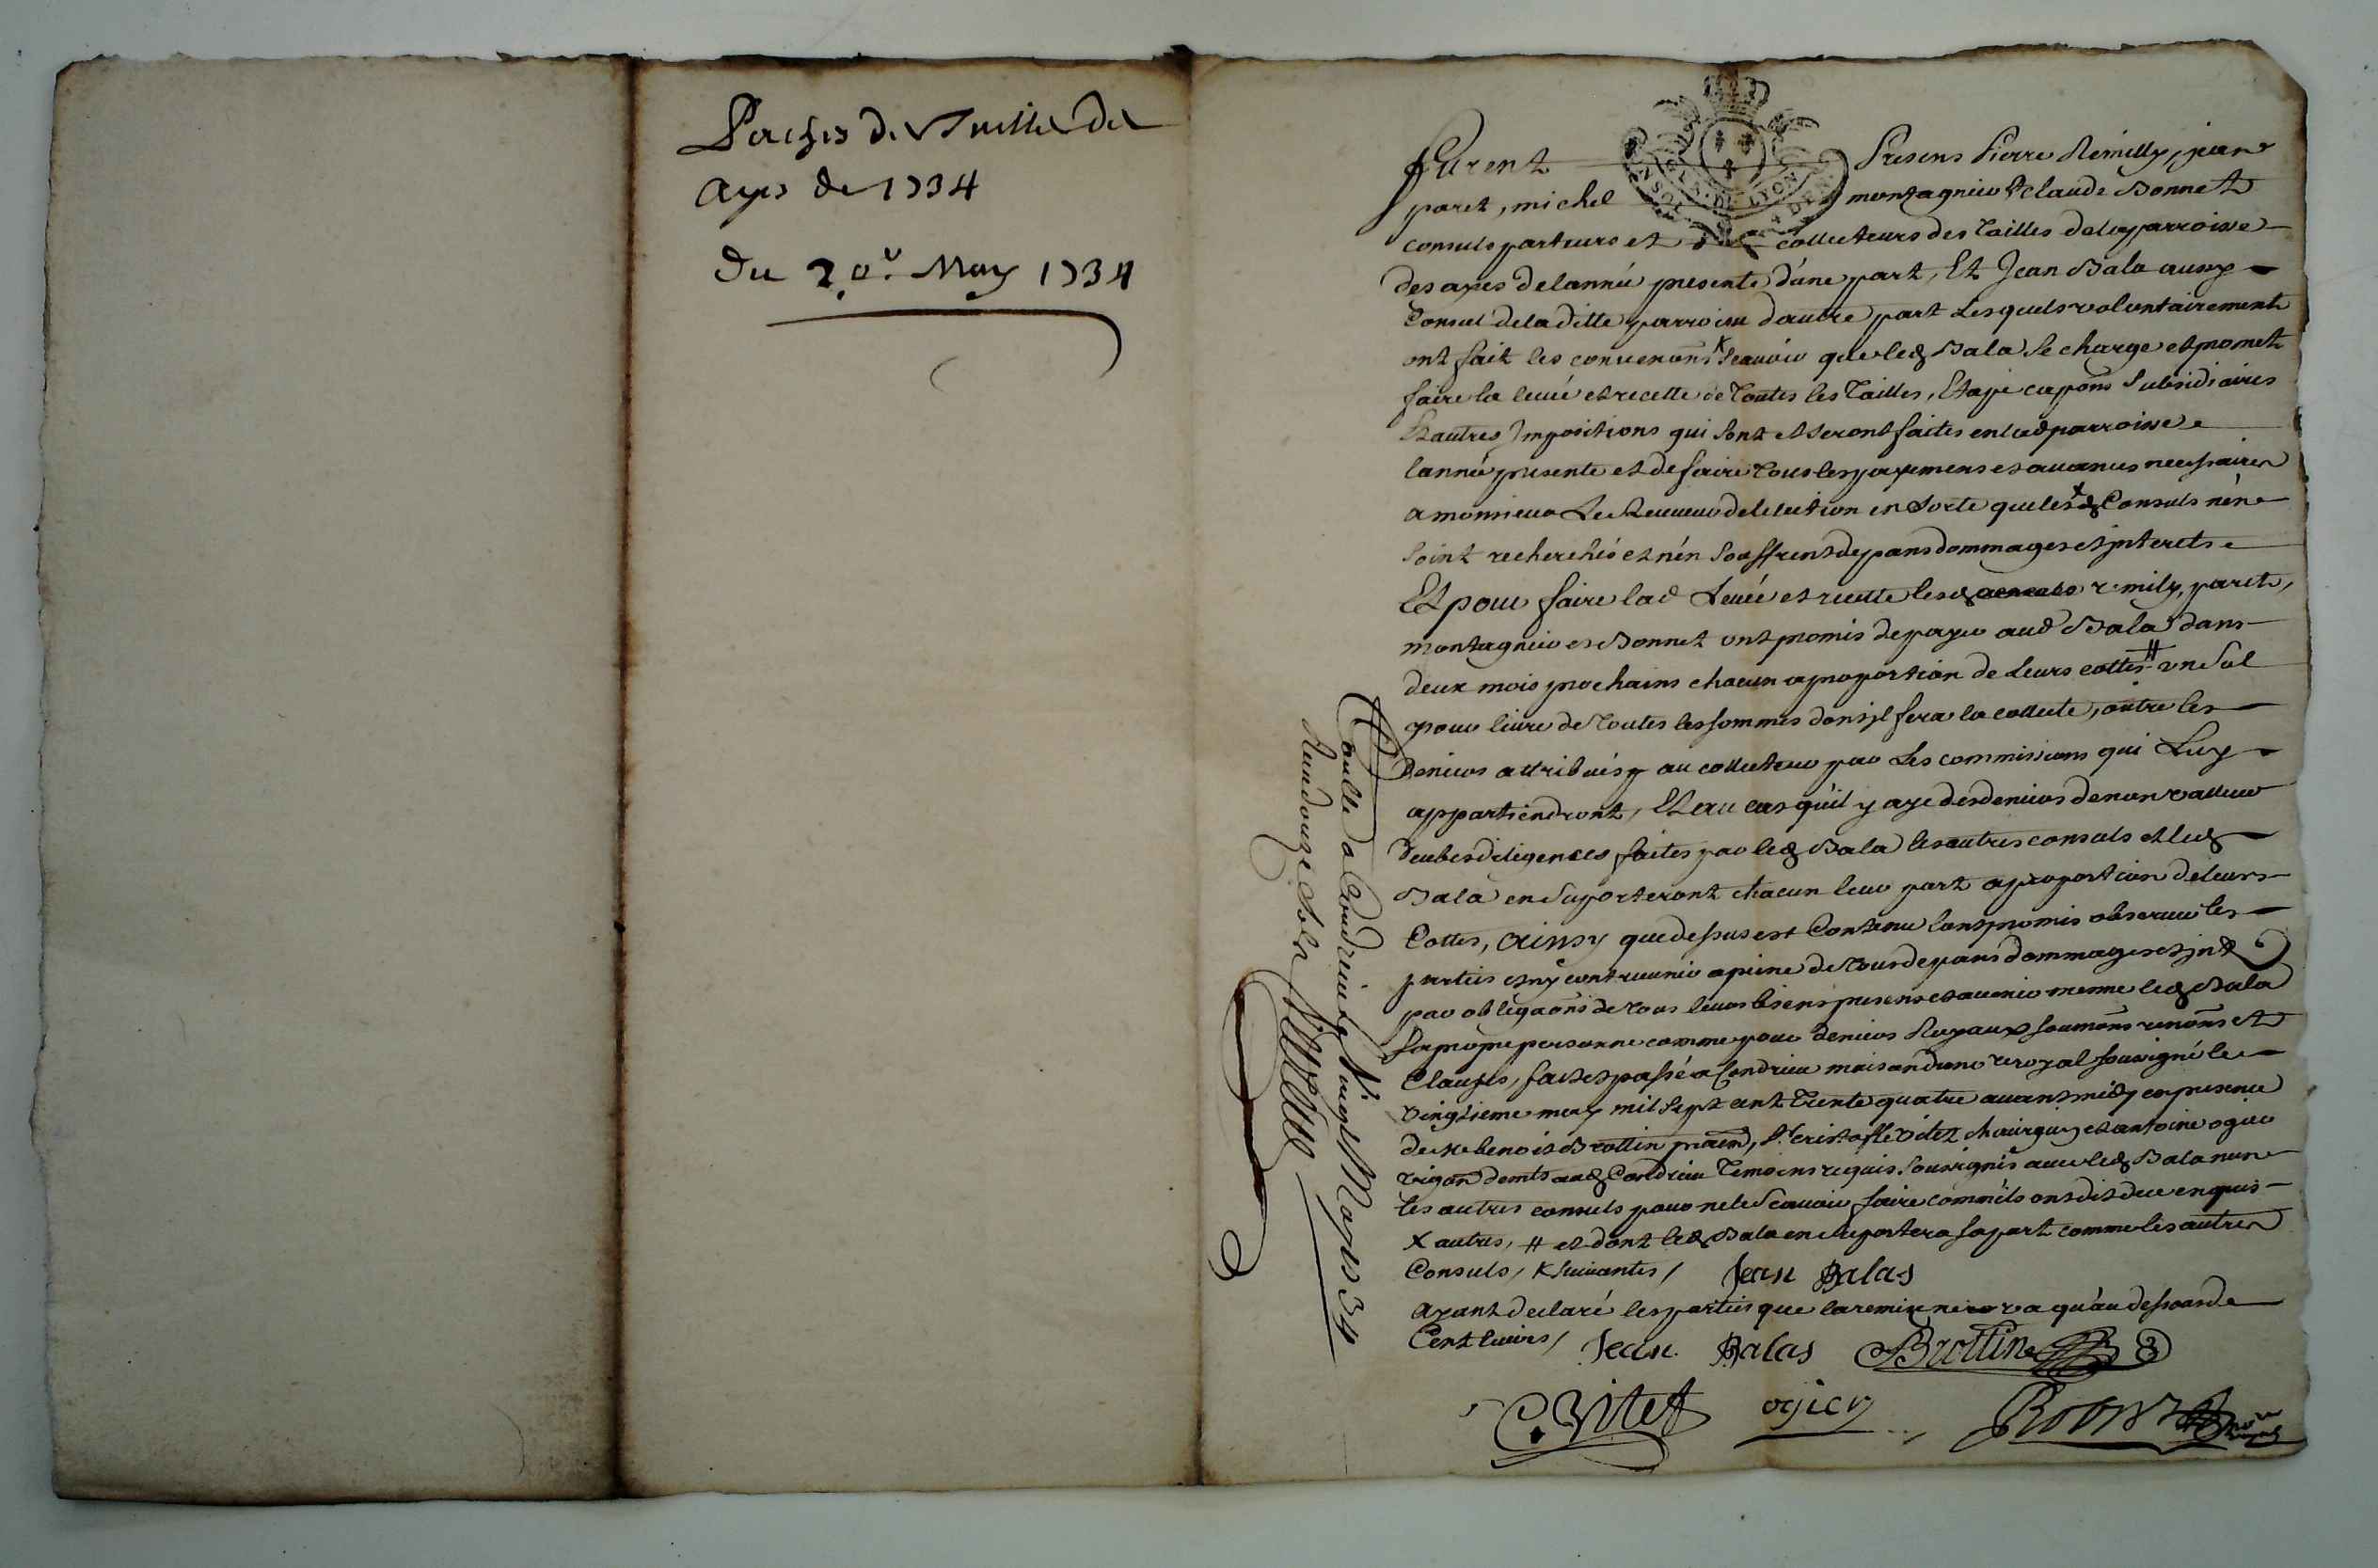 Paches de Taille de
ayes de 1734
du 20e. May 1734
furent Presens Pierre Remilly, jean
paret, michel montagnieu & claude Bonnet
consuls parteurs et collecteurs des Tailles de la parroisse
des ayes de lannée presente d'une part, Et Jean Bala aussy
Consul de la ditte parroisse d'autre part Lesquels volontairement
ont fait les convenons K scavoir que led Bala Se charge et promet
faire la levée et recette de Toutes les Tailles, Etape capons Subsidiaires
Et autres Impositions qui sont et seront faites en lad parroisse
lannée presente et de faire tous les payemens et avances necessaires
a monsieur Le Receveur de lelection en Sorte que les X d Consuls n'en
soint recherchés et n'en Souffrent depans dommages et jnterets
Et pour faire lad Levée et recette lesd remily, paret,
montagnieu et Bonnet ont promis de payer aud Bala dans
deux mois prochains chacun a proportion de Leurs cottes # un Sol
pour livre de toutes les sommes dont jl fera la collecte, outre les
Deniers attribués au collecteur par Les commissions qui Luy
appartiendront, Et au cas qu'il y aye des deniers de non valleur
deubes diligences faites par led Bala les autres consuls et led
Bala en Suporteront chacun leur part a proportion de leurs
Cottes, Ainsy que dessus est Contenu lont promis observer les
parties et ny contrevenir a peine de tous depans dommages et jnt
par obligaons de tous leurs biens presens et avenir mesme led Bala
Sa propre personne comme pour deniers Royaux soumons renons et
Clauses, fait et passé a Condrieu maison du nore royal sousigné le
vingtieme may mil Sept cent Trente quatre avant midy en presence
de Me benoit Brottin praen, Sr. cristofle vitet chirurgien et antoine ogier
vigon demts aud Condrieu Temoins requis Sousignés avec led Bala non
les autres consuls pour ne le Scavoir faire comm'ils ont dit de ce enquis
X autres, # et dont led Bala en suportera sa part comme les autres
Consuls, K Suivantes, Jean Balas
ayant declaré les parties que la remise ne va qu'au dessous de
Cent livres, Jean Balas Brottin
C. Vitet ogier
Conllé a Condrieu le vingt May 1734
Receu douze sols